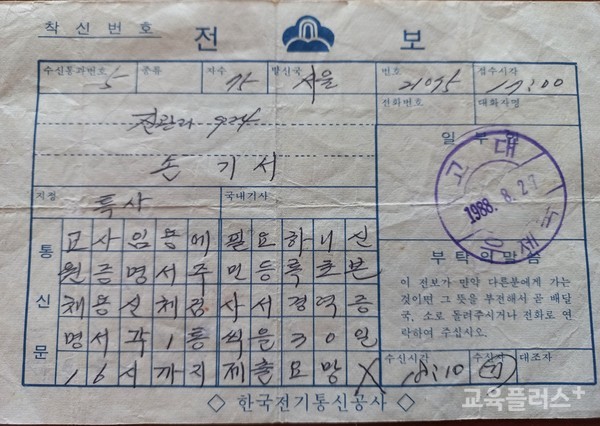 착신번호
전 보
수신통과번호 5 종류 자수 75 발신국 서울 번호 21075 접수시각 17:00
전화번호 대화자명
전관과 924
손 기 서
지정 특사 국내기사
일 부 인
고대
1988. 8. 27
통신문
교사임용에 필요하니 신
원증명서 주민등록초본
채용신체검사서 경력증
명서 각 1통씩을 30일
16시까지 제출요망
부탁의 말씀
이 전보가 만약 다른분에게 가는
것이면 그 뜻을 부전해서 곧 배달
국, 소로 돌려주시거나 전화로 연
락하여 주십시오.
수신시각 18:10 수신자 대조자
◇ 한국전기통신공사 ◇
교육플러스+